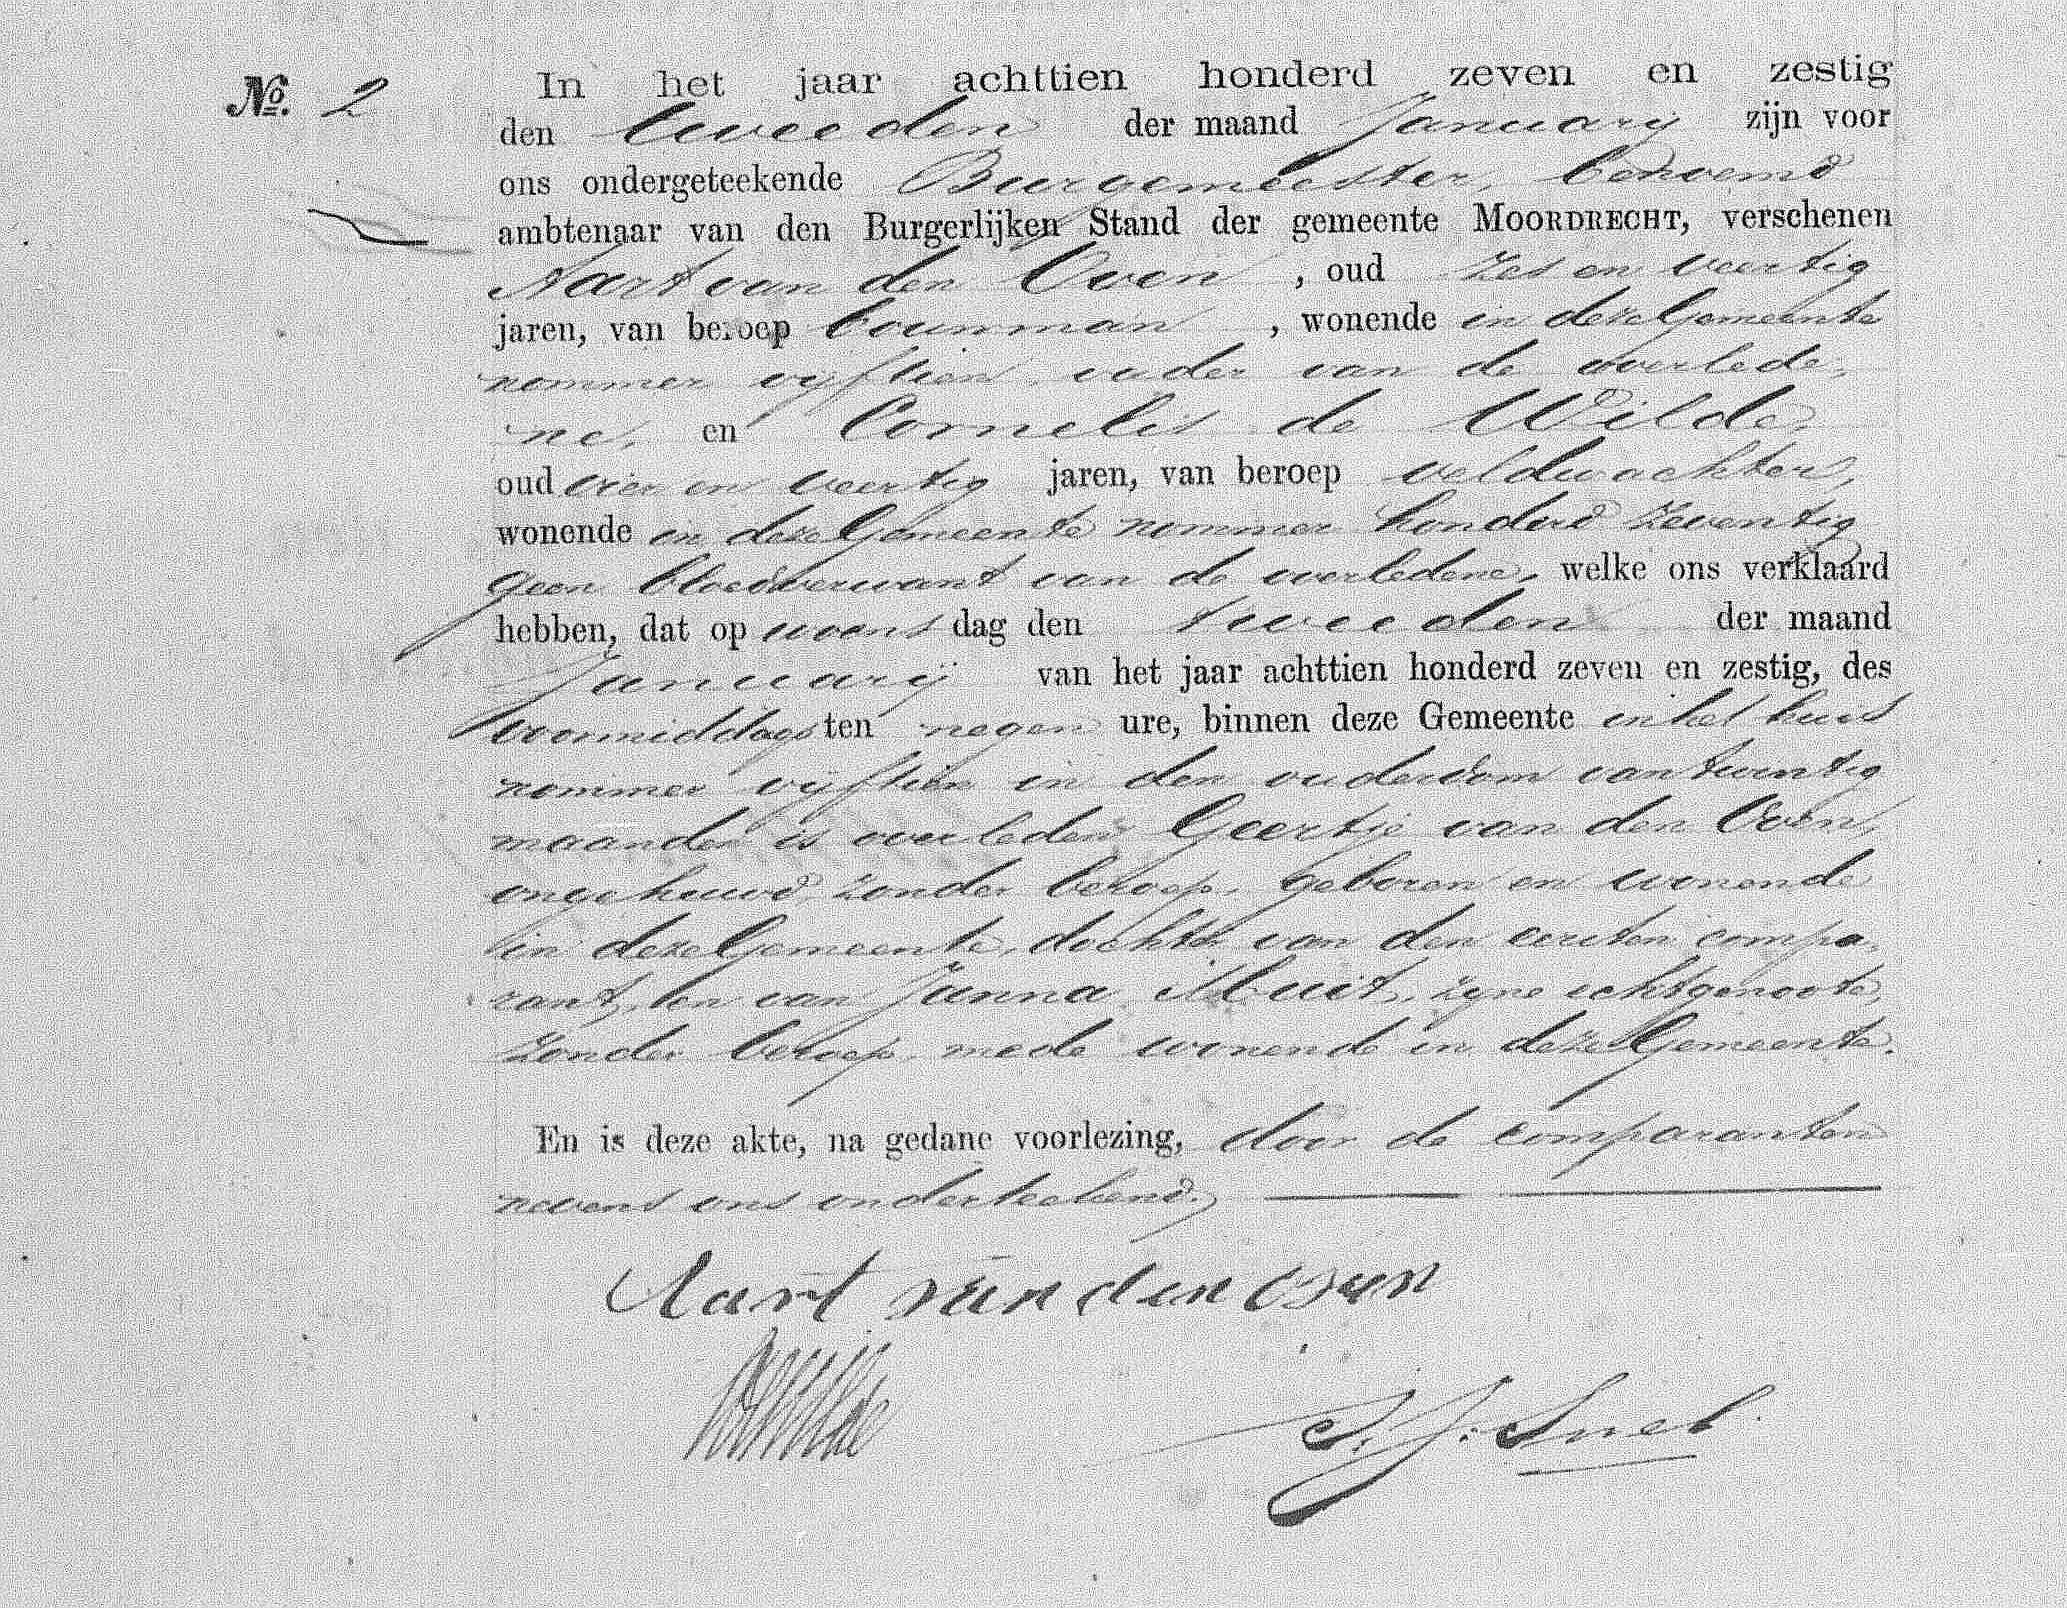 No. 2
In het jaar achttien honderd zeven en zestig
den tweeden der maand January zijn voor
ons ondergeteekende Burgemeester, benoemd
ambtenaar van den Burgerlijken Stand der gemeente MOORDRECHT, verschenen
Aart van den Oven, oud zes en veertig
jaren, van beroep bouwman, wonende in deze Gemeente
nommer vyftien, vader van de overlede-
ne, en Cornelis de Wilde,
oud vier en veertig jaren, van beroep veldwachter,
wonende in deze Gemeente nommer honderd zeventig
geen bloedverwant van de overledene, welke ons verklaard
hebben, dat op woensdag den tweeden der maand
January van het jaar achttien honderd zeven en zestig, des
voormiddags ten negen ure, binnen deze Gemeente in het huis
nommer vyftien in den ouderdom van twintig
maanden is overleden Geertje van den Oven,
ongehuwd, zonder beroep, geboren en wonende
in deze Gemeente, dochter van den eersten compa-
rant, en van Janna Muit, zyne echtgenoote,
zonder beroep, mede wonende in deze Gemeente.
En is deze akte, na gedane voorlezing, door de comparanten
nevens ons onderteekend.
Aart van den oven
dWilde
J. J. Snel